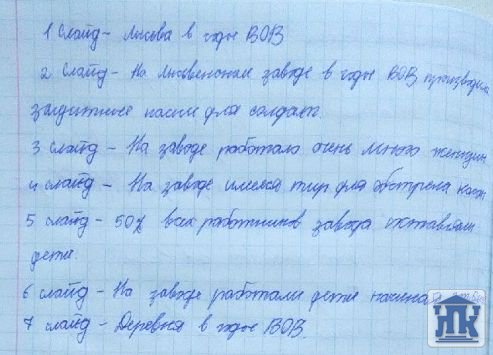 1 слайд - Лысьва в годы ВОВ
2 слайд - На Лысьвенском заводе в годы ВОВ производили
защитные каски для солдат.
3 слайд - На заводе работало очень много женщин
4 слайд - На заводе имелся тир для обстрела касок
5 слайд - 50% всех работников завода составляли
дети.
6 слайд - На заводе работали дети начиная
7 слайд - Деревня в годы ВОВ.
ПК